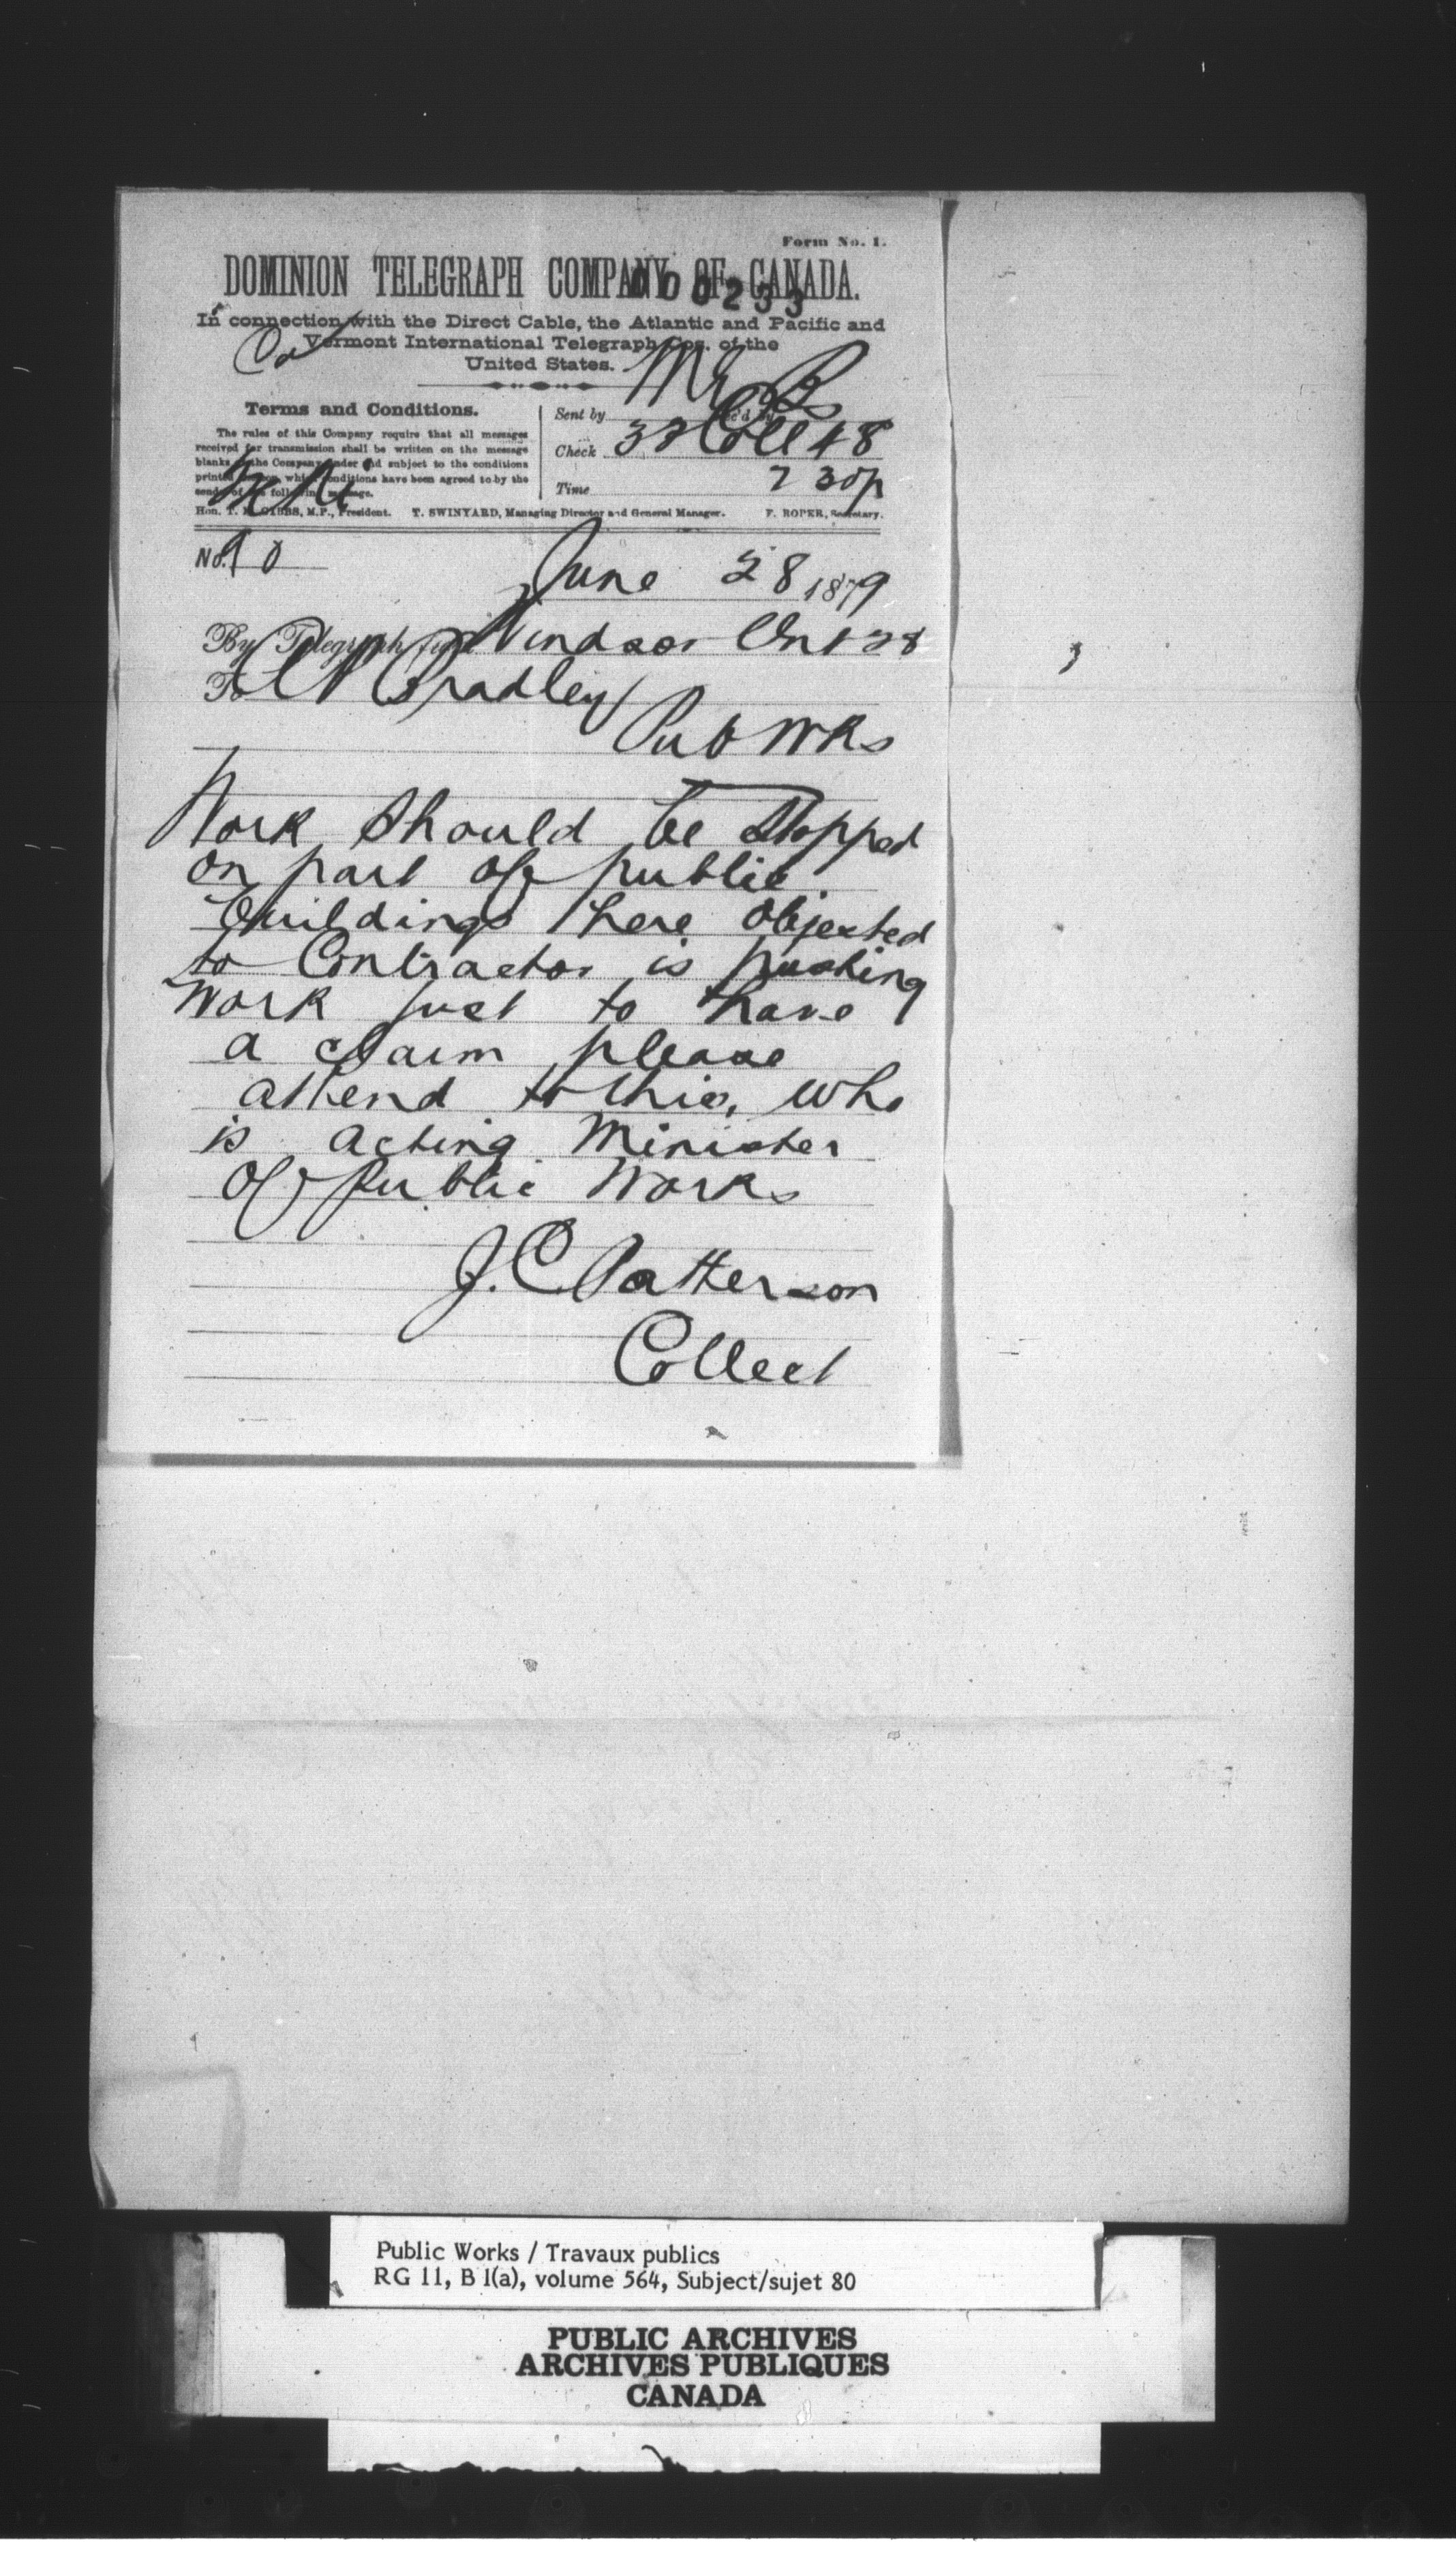 Form No. 1.
DOMINION TELEGRAPH COMPANY OF CANADA.
000233
In connection with the Direct Cable, the Atlantic and Pacific and
Vermont International Telegraph Cos. of the
United States.
Terms and Conditions.
The rules of this Company require that all messages
received for transmission shall be written on the message
blanks of the Company under and subject to the conditions
printed hereon, which conditions have been agreed to by the
sender of the following message.
Sent by Rec'd by
Check 38 Coll 48
Time 7 30p
Hon. T. N. GIBBS, M.P., President. T. SWINYARD, Managing Director and General Manager. F. ROPER, Secretary.
No. 90
June 28 1879
By Telegraph from Windsor Ont 28
To Bradley
Pub Wks
Work should be stopped
on part of public
buildings here objected
to Contractor is pushing
work just to have
a claim please
attend to this, who
is acting Minister
of Public Works
J. C. Patterson
Collect
Public Works / Travaux publics
RG 11, B 1(a), volume 564, Subject/sujet 80
PUBLIC ARCHIVES
ARCHIVES PUBLIQUES
CANADA